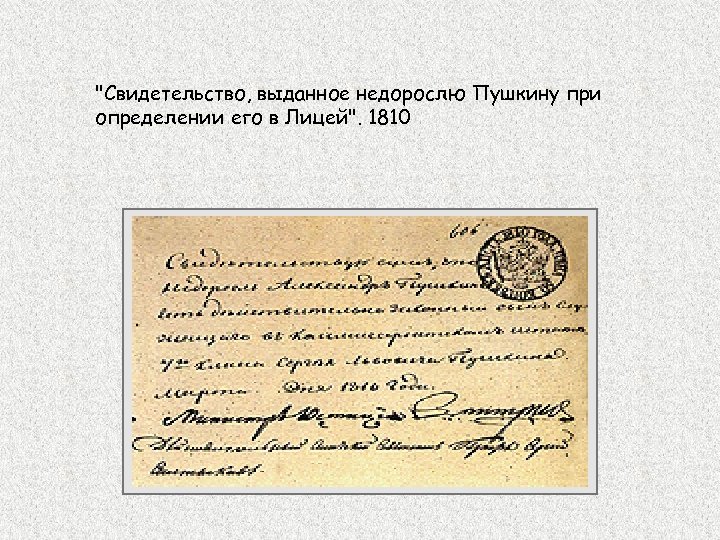 "Свидетельство, выданное недорослю Пушкину при
определении его в Лицей". 1810
606
Свидетельствую симъ, что
недоросль Александръ Пушкинъ
есть действительно законный сынъ Слу
жащаго въ Коммиссариатскомъ штате
7го класса Сергея Львовича Пушкина
Марта Дня 1810 года.
Министръ Юстиціи Дмитриевъ